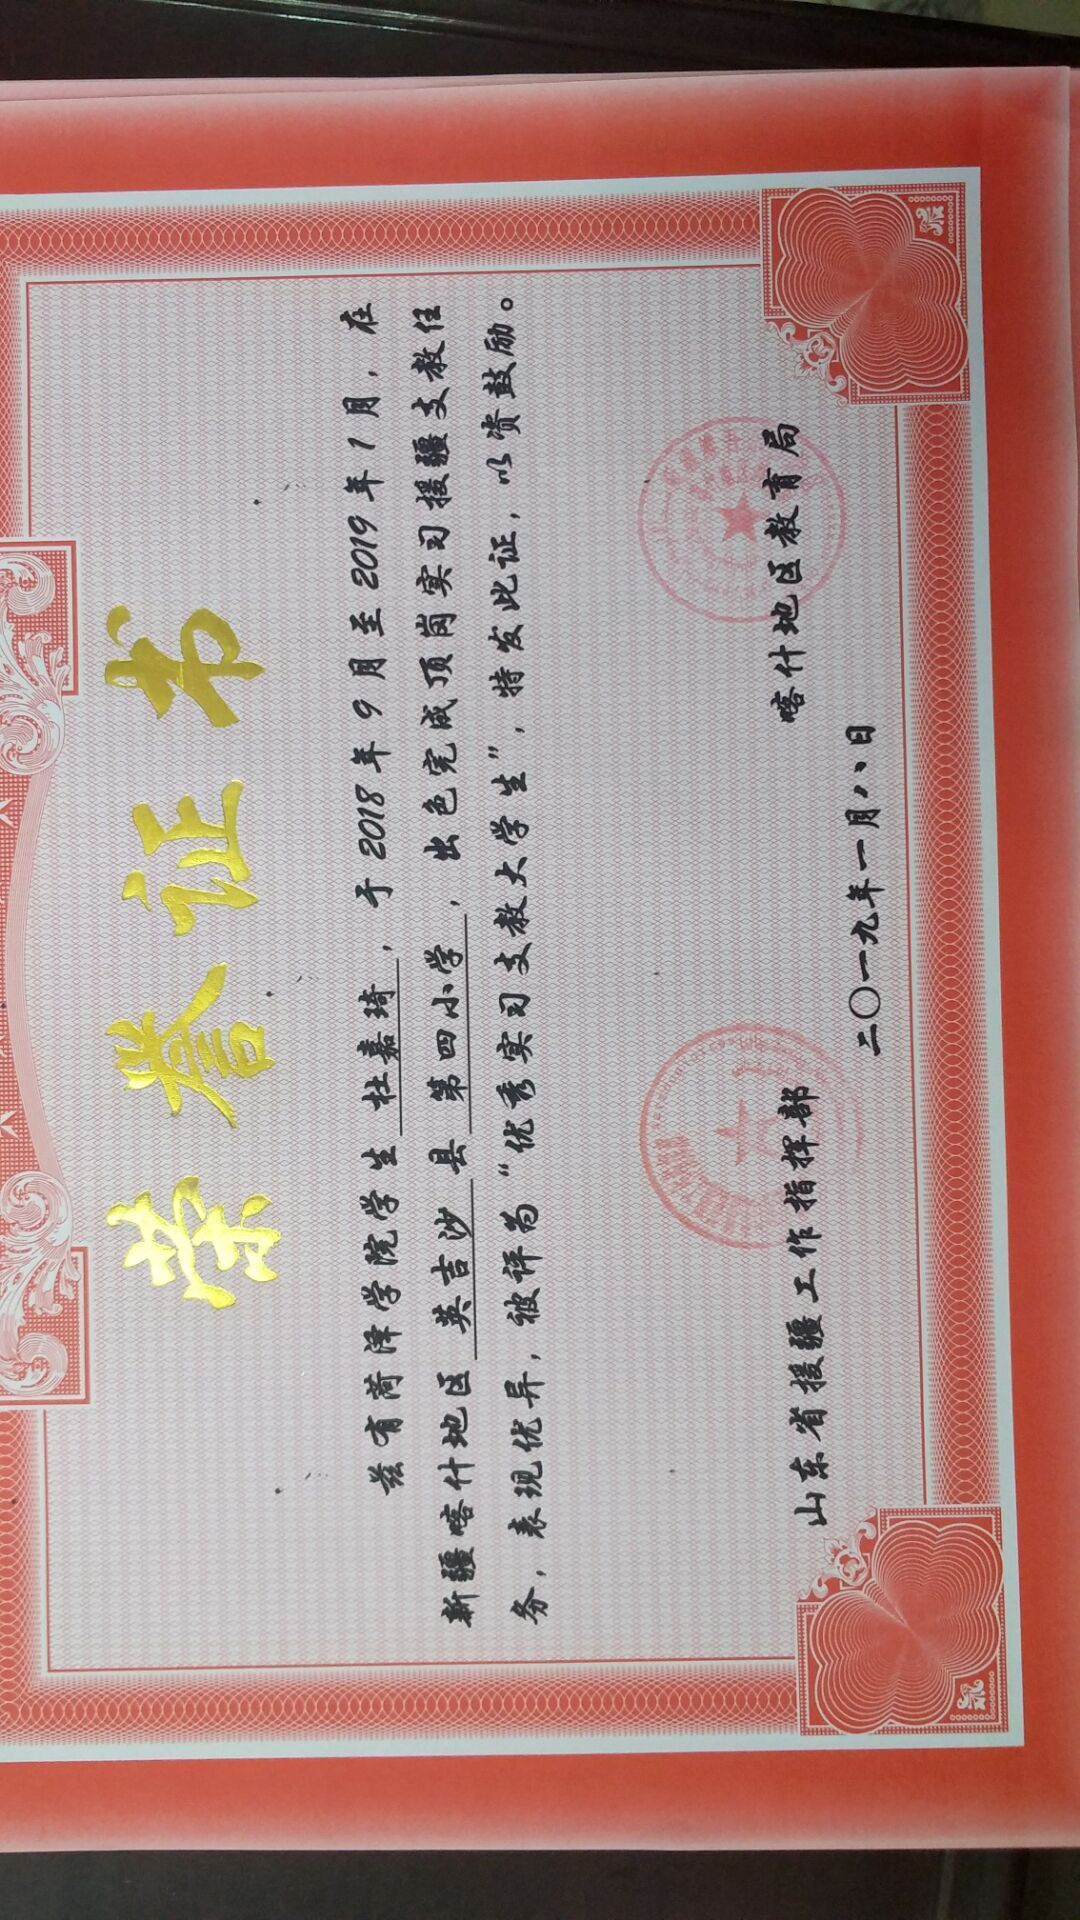 荣誉证书
兹有菏泽学院学生 杜嘉琦，于2018年9月至2019年1月，在
新疆喀什地区 英吉沙 县 第四小学，出色完成顶岗实习援疆支教任
务，表现优异，被评为“优秀实习支教大学生”，特发此证，以资鼓励。
山东省援疆工作指挥部 喀什地区教育局
二〇一九年一月八日